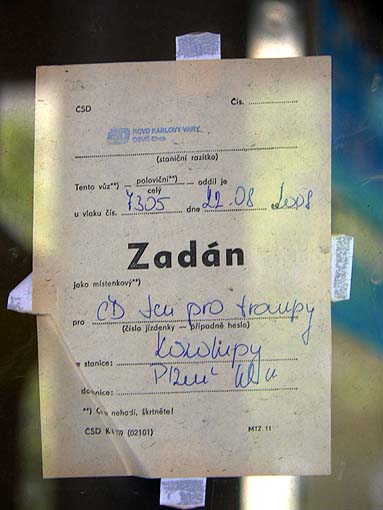 ČSD Čís.
RCVD KARLOVY VARY
(staniční razítko)
Tento vůz**) — poloviční**) — oddíl je
celý
u vlaku čís. 7305 dne 22.08 2008
Zadán
jako místenkový**)
pro ČD Jen pro troupy
(číslo jízdenky — případně heslo)
stanice: Kozolupy
Plzně
stanice:
**) Co nehodí, škrtněte!
ČSD (02101) MTZ 11